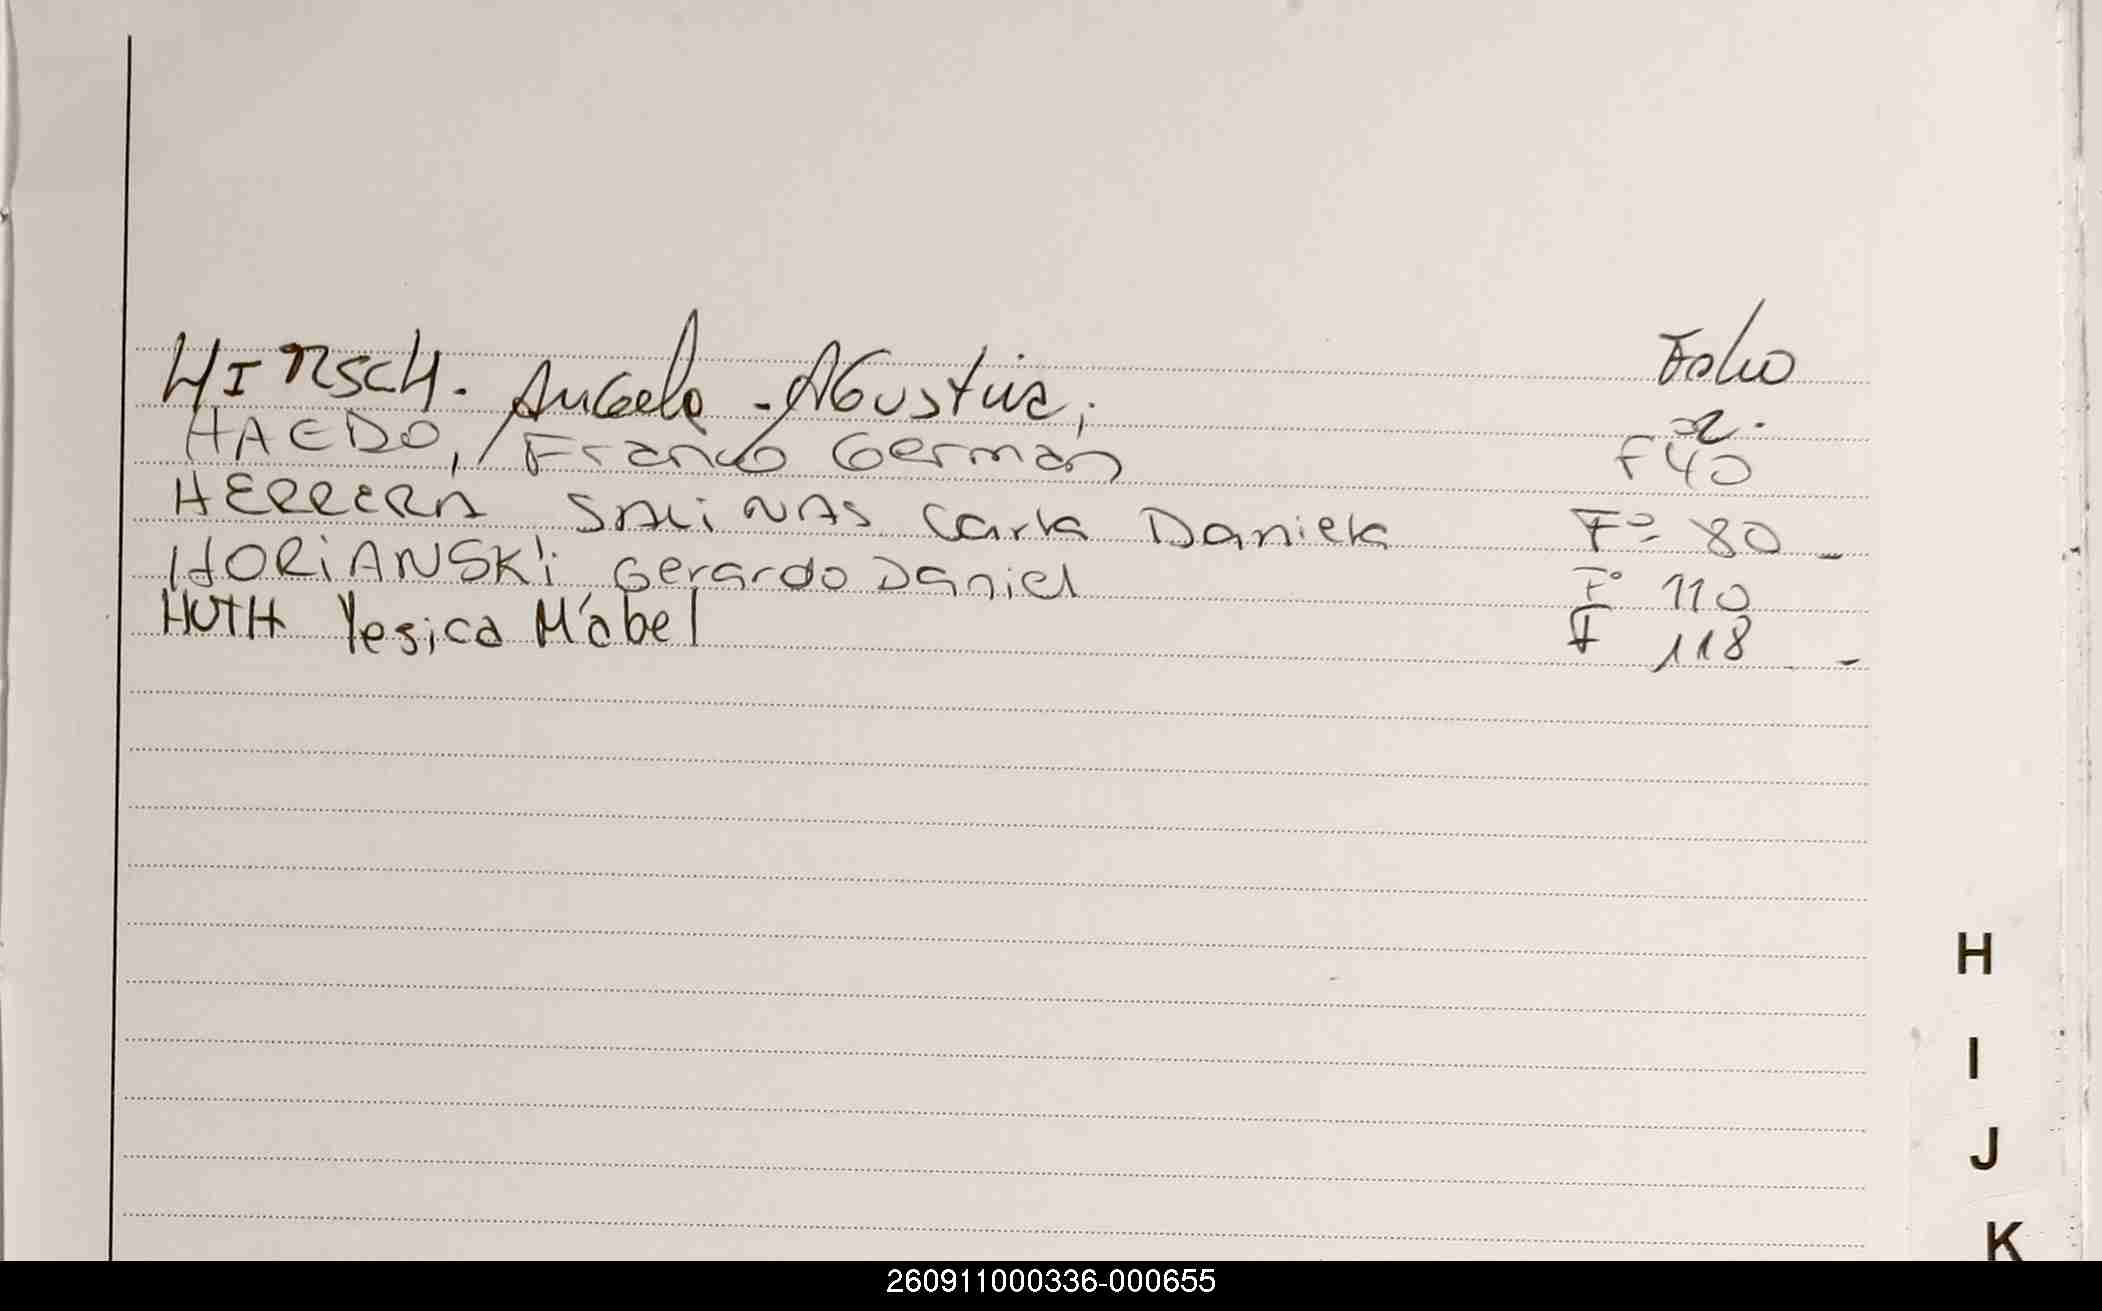 HIRSCH. Angela - Agustina; Folio 2.
HAEDO, Franco Germán F 40
HERRERA SALiNAS Carla Daniela Fº 80 -
HORiANSKi Gerardo Daniel Fº 110
HUTH Yesica Mabel F 118 -
H
I
J
K
260911000336-000655